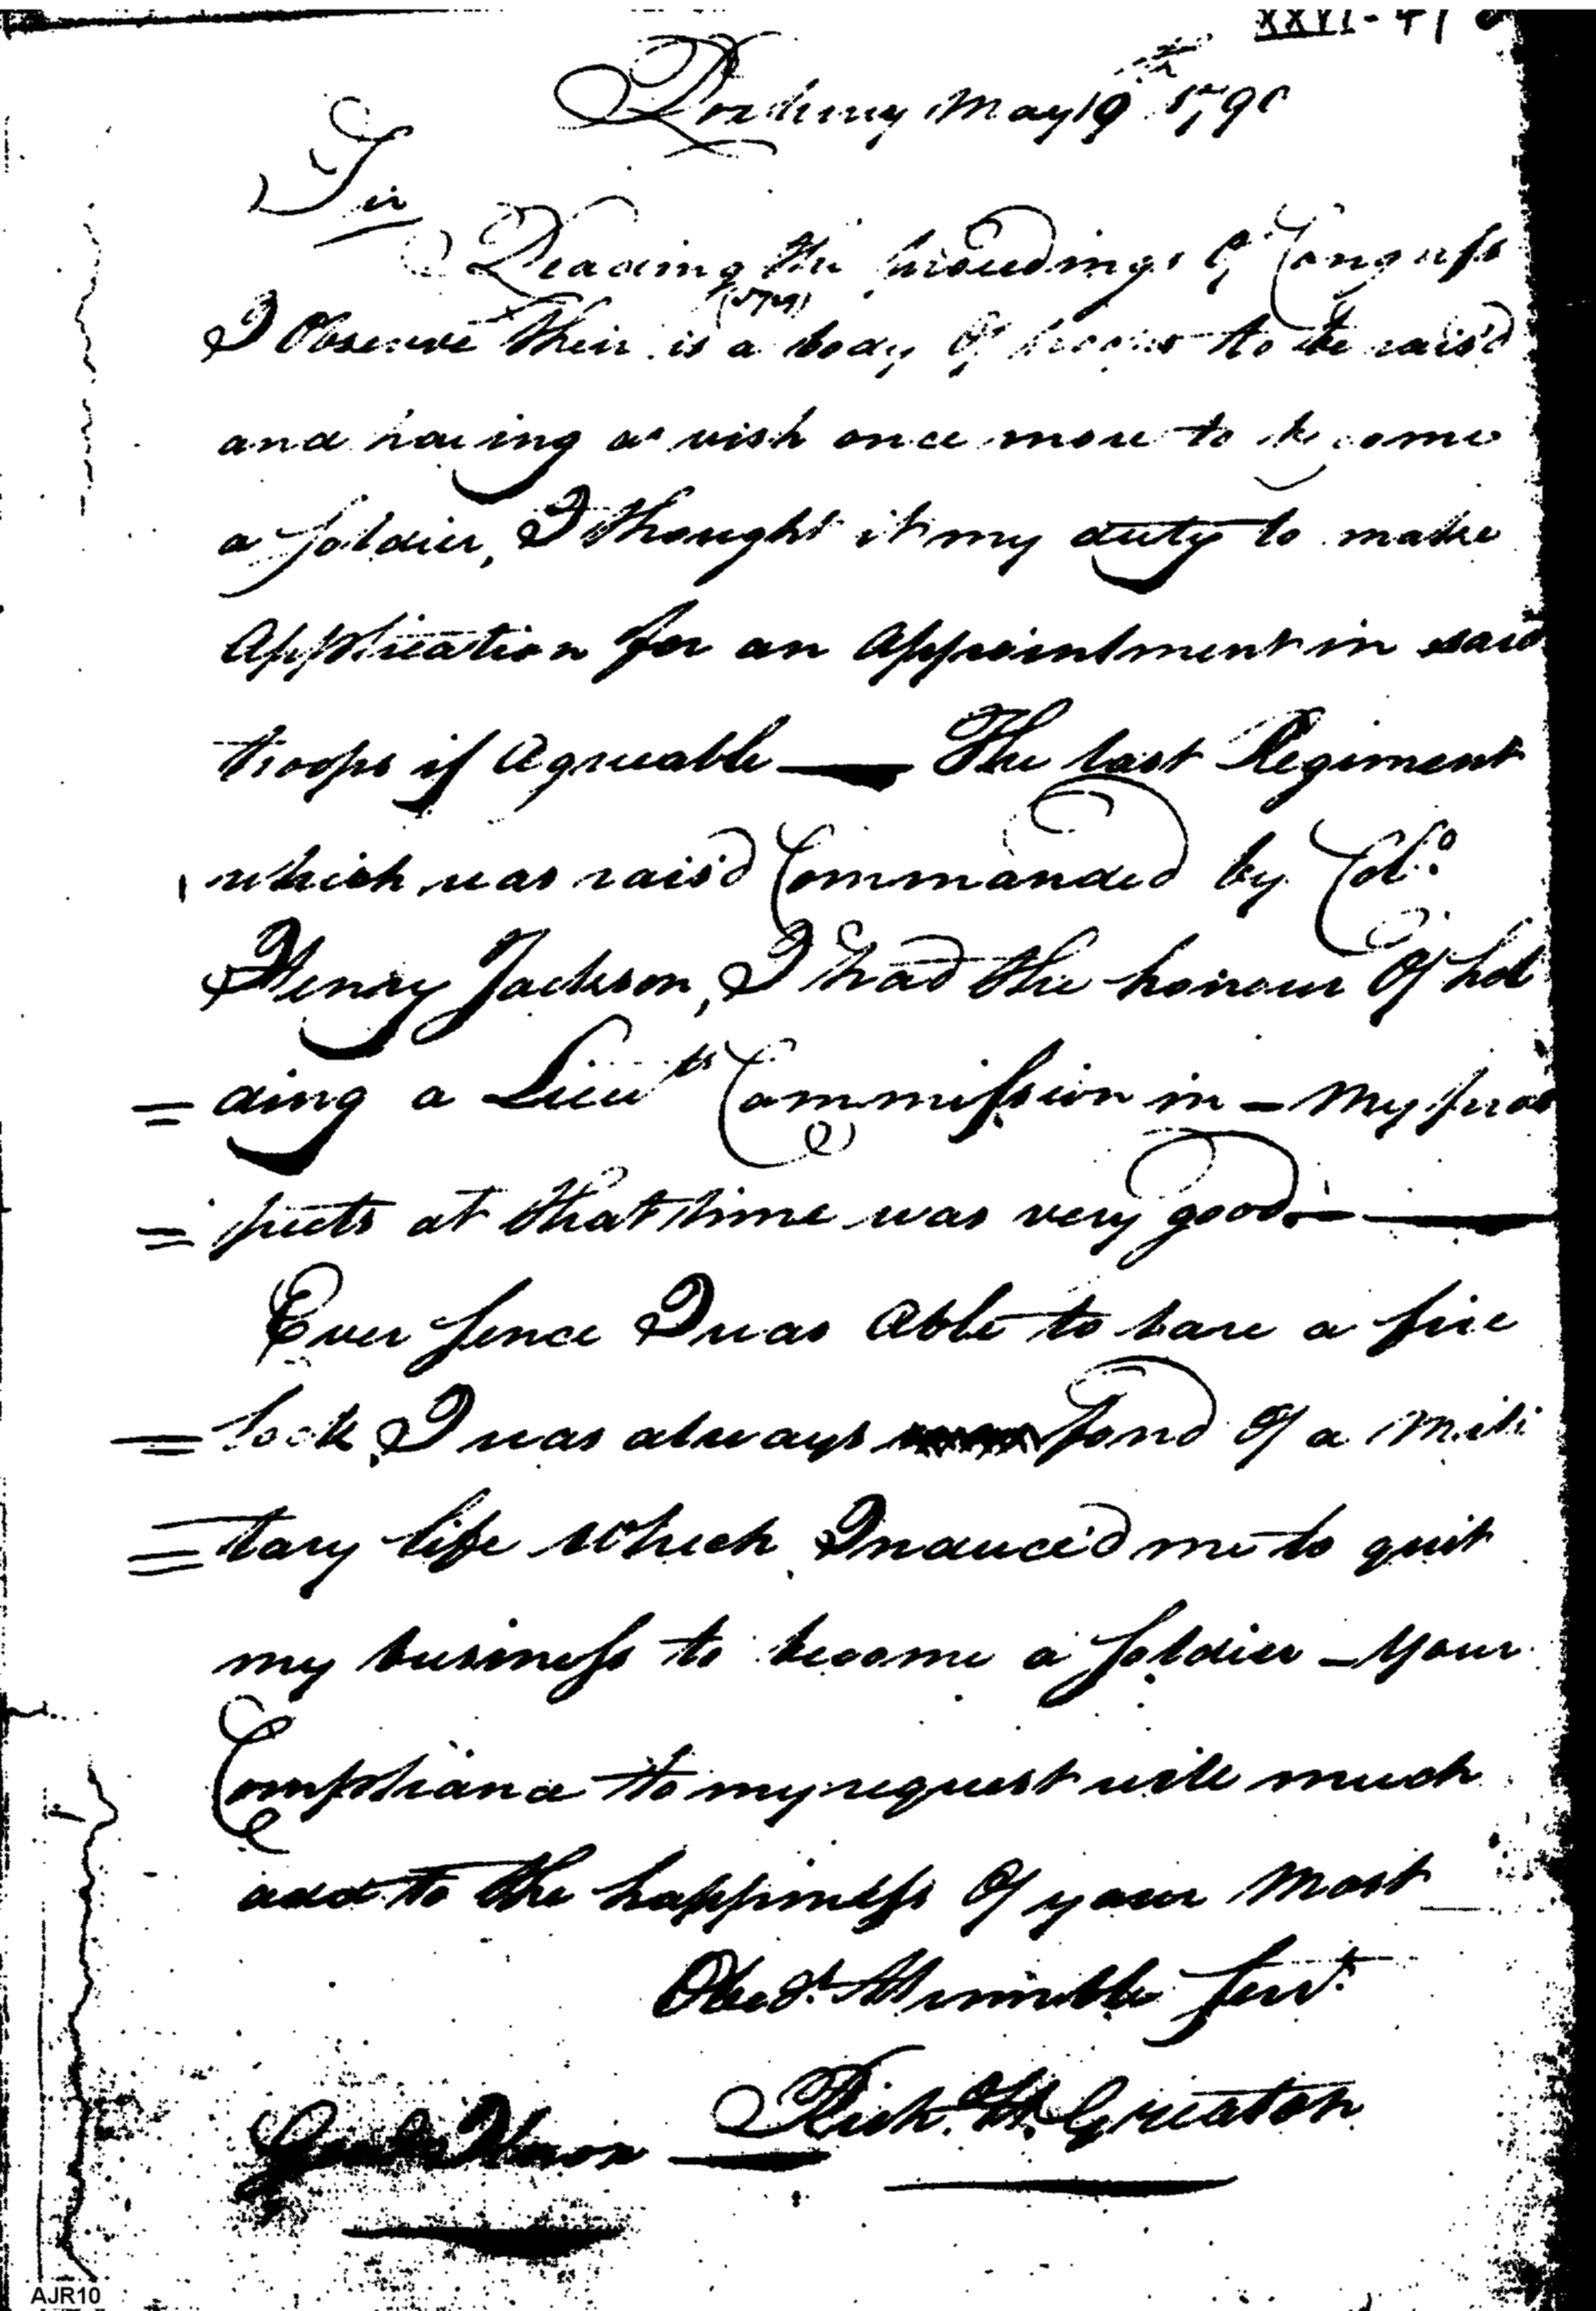 XXVI - 41
Roxbury May 19th 1790
Sir
Reading the proceedings of Congress
I Observe their is a body of troops to be rais'd
and having a wish once more to become
a soldier, I thought it my duty to make
Application for an Appointment in said
troops if Agreeable — The last Regiment
which was rais'd Commanded by Colo.
Henry Jackson, I had the honour Of hol
= ding a Lieuts Commission in – My pros
= pects at that time was very good. —
Ever sence I was Able to bare a fire
= lock, I was always fond Of a Mili
= tary life Which Induced me to quit
my business to become a soldier – Your
Compliance to my request will much
add to the happiness Of your Most
Obedt. Humble Servt.
Rich. H. Greaton
Genl. Knox —
AJR10